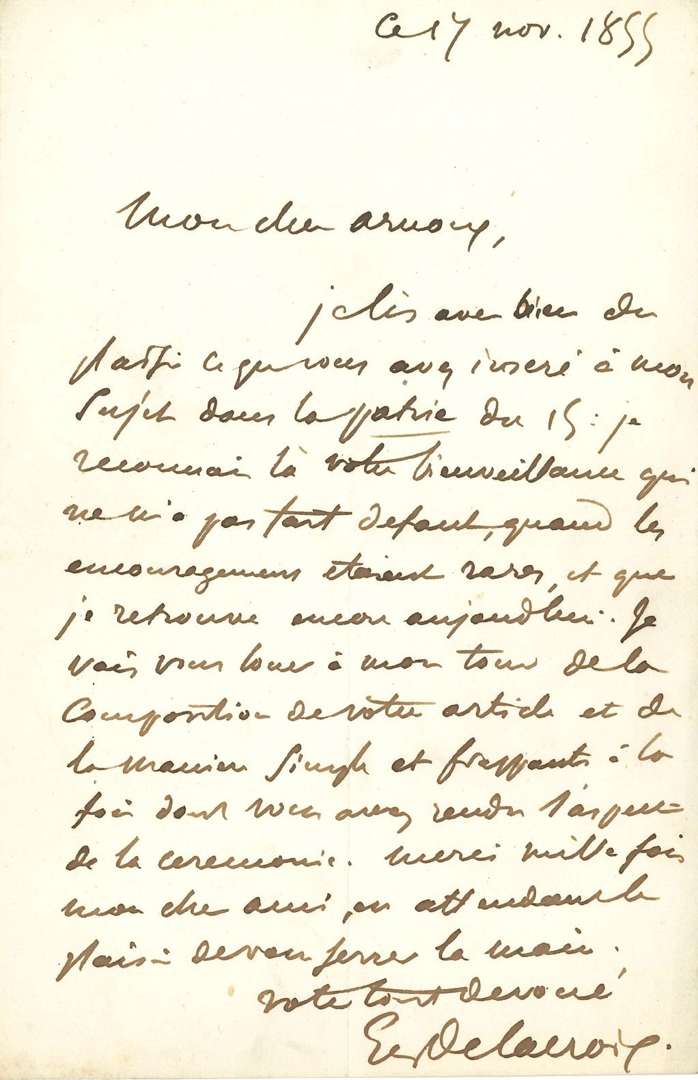 Ce 17 nov. 1855
Mon cher arnoux,
je lis avec bien du
plaisir ce que vous avez inseré à mon
Sujet dans la patrie du 15 : je
reconnais là votre bienveillance qui
ne m'a pas fait defaut, quand les
encouragemens etaient rares, et que
je retrouve encore aujourdhui. Je
vais vous louer à mon tour de la
Composition de votre article et de
la maniere Simple et frappante à la
fois dont vous avez rendu l'aspect
de la ceremonie. Merci mille fois
mon cher ami, en attendant le
plaisir de vous serrer la main.
votre tout devoué
Eug Delacroix.